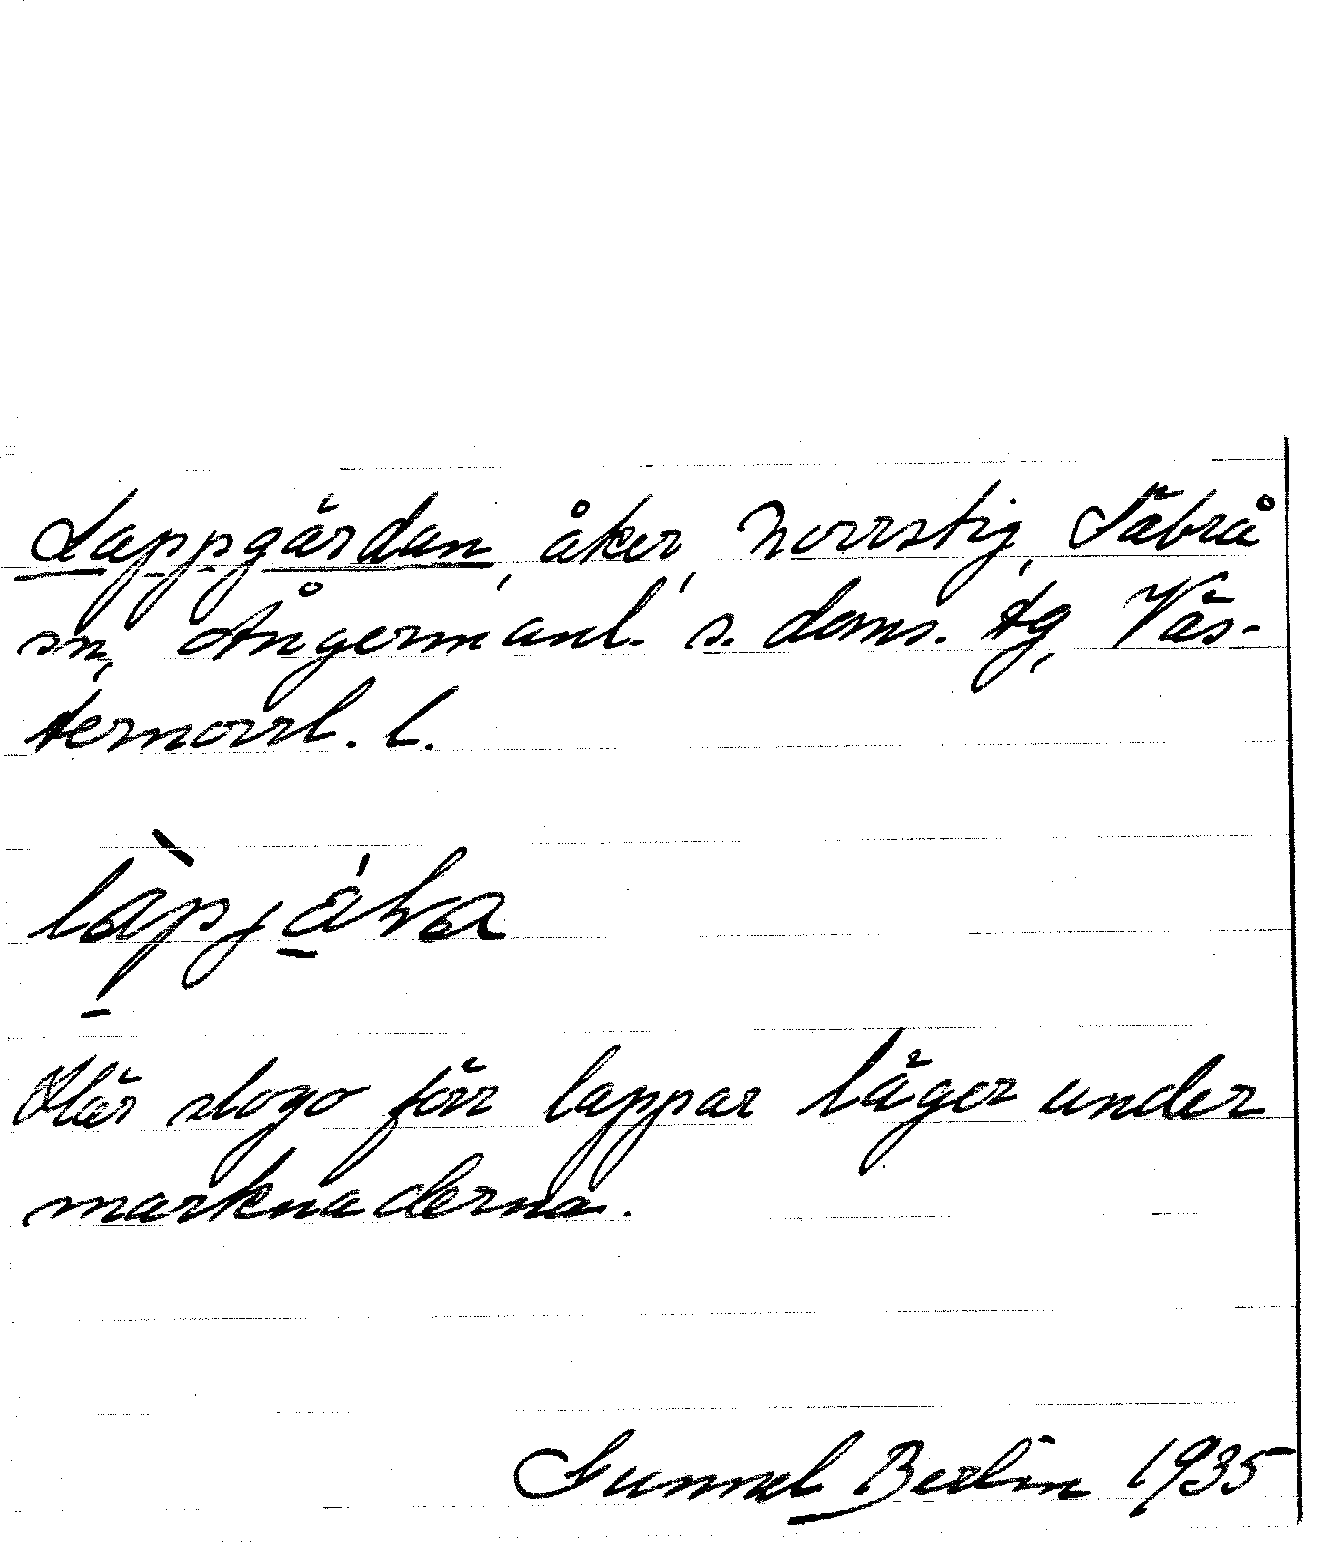 Lappgärdan, åker, Norrstig, Säbrå
sn, Ångermanl. s. doms. tg, Väs-
ternorrl. l.
Här slogo förr lappar läger under
marknaderna.
Gunnel Berlin 1935